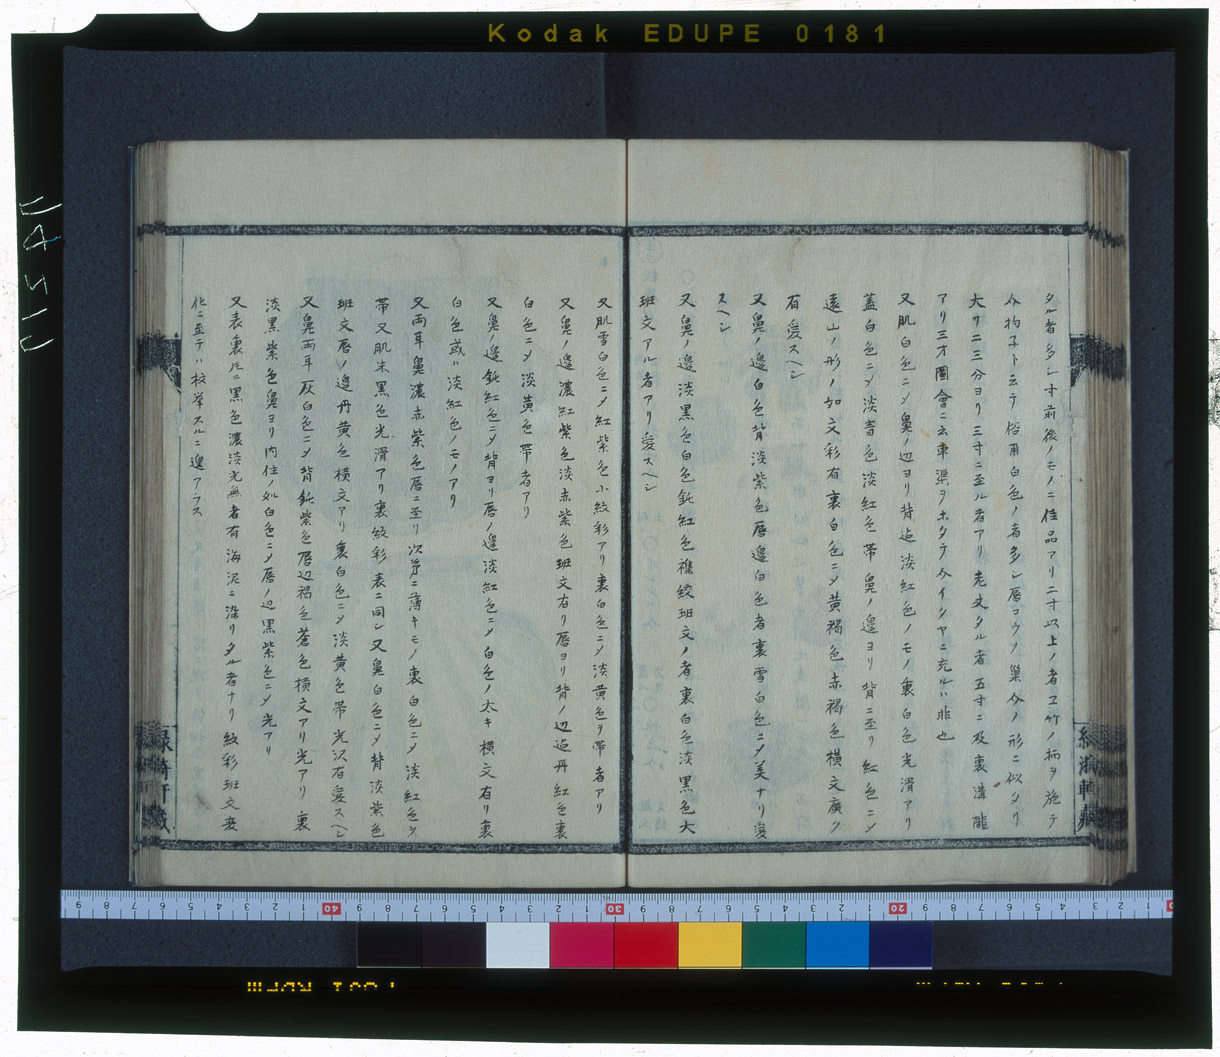 Kodak EDUPE 0181
タル者多シ寸前後ノモノニ佳品アリ二寸以上ノ者ヱ竹ノ柄ヲ施テ
今杓子ト云テ俗用白色ノ者多シ唇コウノ巣今ノ形ニ似タリ
大サ二三分ヨリ三寸ニ至ル者アリ老丈タル者五寸ニ及裏溝隴
アリ三才圖會ニ云車渠ヲホタテ今イタヤニ充ルハ非也
又肌白色ニメ鼻ノ辺ヨリ背迠淡紅色ノモノ裏白色光滑アリ
蓋白色ニメ淡青色淡紅色帯鼻ノ邉ヨリ背ニ至リ紅色ニメ
遠山ノ形ノ如文彩有裏白色ニメ黄褐色赤褐色横文廣ク
有愛スヘシ
又鼻ノ邉白色背淡紫色唇邉白色者裏雪白色ニメ美ナリ愛
スヘシ
又鼻ノ邉淡黒色白色鈍紅色纐班文ノ者裏白色淡黒色大
班文アル者アリ愛スヘシ
又肌雪白色ニメ紅紫色小紋彩アリ裏白色ニメ淡黄色ヲ帯者アリ
又鼻ノ邉濃紅紫色淡赤紫色班文有リ唇ヨリ背ノ辺迠丹紅色裏
白色ニメ淡黄色帯者アリ
又鼻ノ邉鈍紅色ニメ背ヨリ唇ノ邉淡紅色ニメ白色ノ大キ横文有リ裏
白色或ハ淡紅色ノモノアリ
又両耳鼻濃赤紫色唇ニ至リ次第ニ薄キモノ裏白色ニメ淡紅色ヲ
帯又肌朱黒色光滑アリ裏紋彩表ニ同シ又鼻白色ニメ背淡紫色
班文唇ノ邉丹黄色横文アリ裏白色ニメ淡黄色帯光沢有愛スヘシ
又鼻両耳灰白色ニメ背鈍紫色唇辺褐色蒼色横文アリ光アリ裏
淡黒紫色鼻ヨリ肉住ノ処白色ニメ唇ノ辺黒紫色ニメ光アリ
又表裏圧ニ黒色濃淡光無者有海泥ニ染リタル者ナリ紋彩班文変
化ニ至テハ枚挙スルニ遑アラス